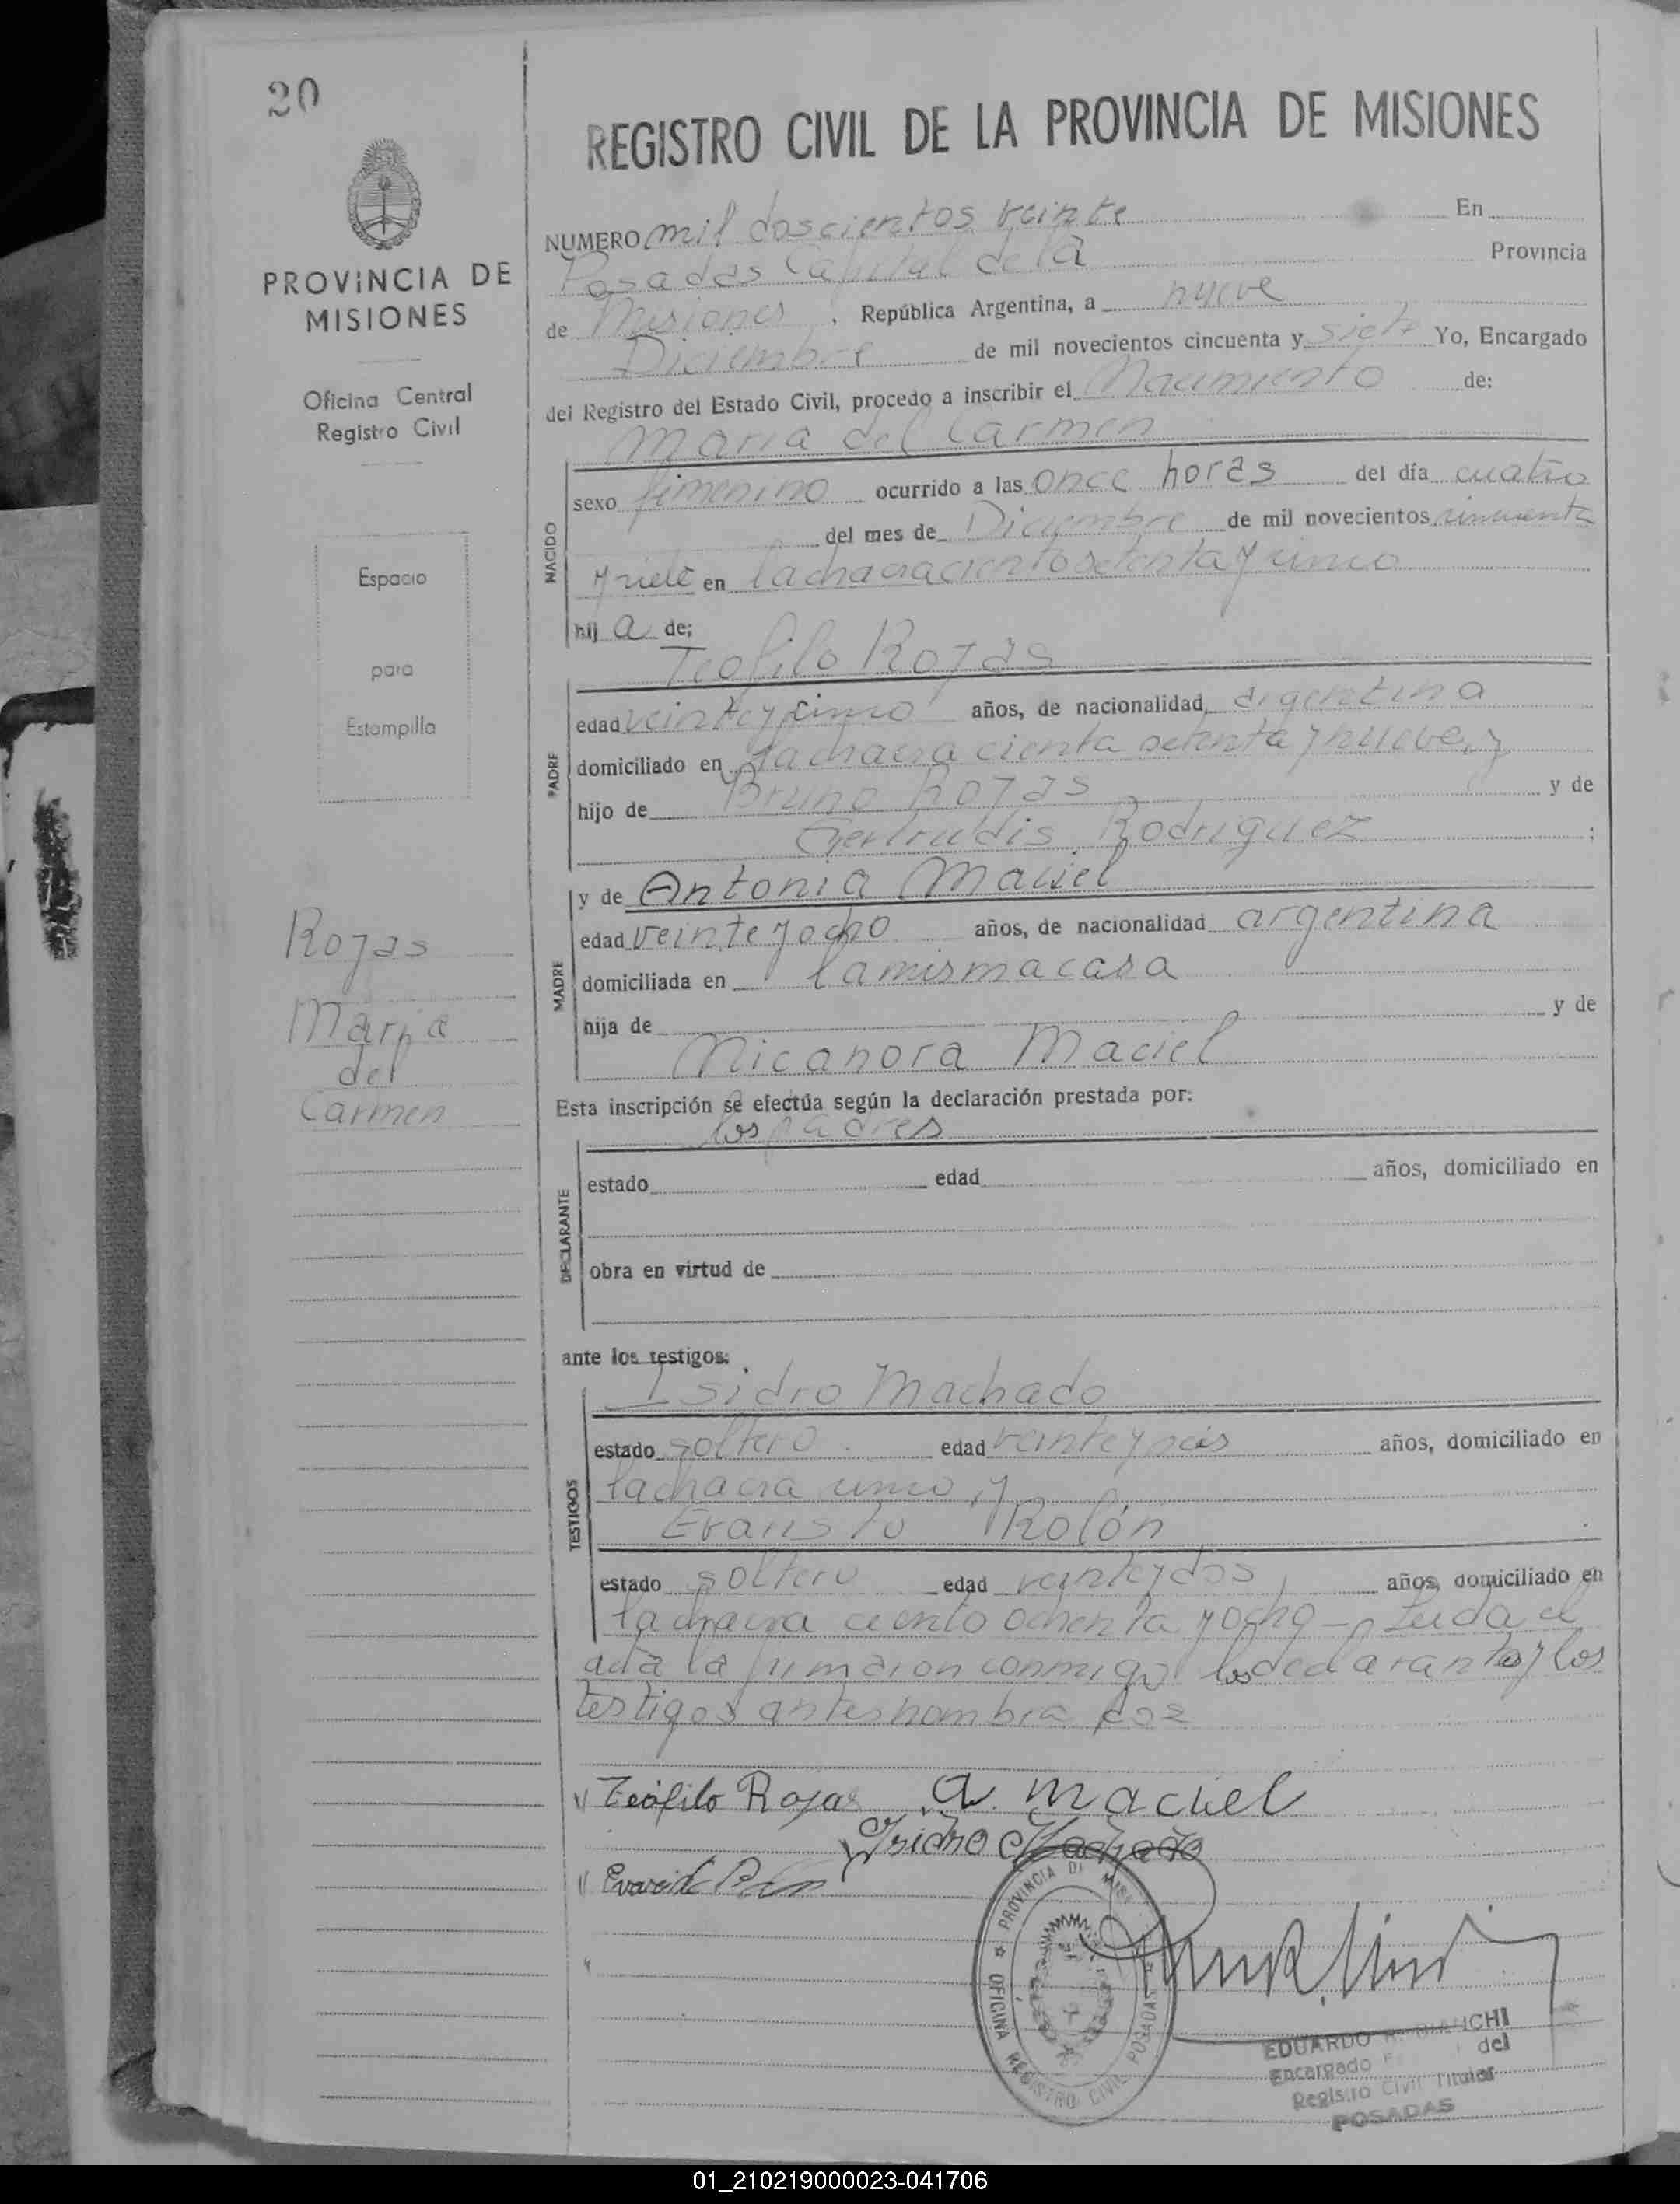 20
PROVINCIA DE
MISIONES
Oficina Central
Registro Civil
Espacio
para
Estampilla
Rojas
Maria
del
Carmen
REGISTRO CIVIL DE LA PROVINCIA DE MISIONES
NUMERO mil doscientos veinte En
Posadas Capital de la Provincia
de Misiones, República Argentina, a nueve
Diciembre de mil novecientos cincuenta y siete Yo, Encargado
del Registro del Estado Civil, procedo a inscribir el Nacimiento de:
Maria del Carmen
NACIDO
sexo femenino ocurrido a las once horas del día cuatro
del mes de Diciembre de mil novecientos cincuenta
y siete en la chacra ciento setenta y cinco
hij a de;
Teofilo Rojas
PADRE
edad veinte y cinco años, de nacionalidad argentina
domiciliado en la chacra ciento setenta y nueve, y
hijo de Bruno Rojas y de
Gertrudis Rodriguez ;
y de Antonia Maciel
MADRE
edad veinte y ocho años, de nacionalidad argentina
domiciliada en la misma casa
hija de y de
Nicanora Maciel
Esta inscripción se efectúa según la declaración prestada por:
los padres
DECLARANTE
estado edad años, domiciliado en
obra en virtud de
ante los testigos:
Isidro Machado
TESTIGOS
estado soltero edad veinte y seis años, domiciliado en
la chacra cinco, y
Evaristo Rolón
estado soltero edad veinte y dos años, domiciliado en
la chacra ciento ochenta y ocho - Leida el
acta la firmaron conmigo los declarantes y los
testigos antes nombra dos
Teófilo Rojas A. Maciel
Isidro Machado
PROVINCIA DE MISIONES
OFICINA REGISTRO CIVIL POSADAS
EDUARDO R. BIANCHI
Encargado del
Registro Civil Titular
POSADAS
01_210219000023-041706